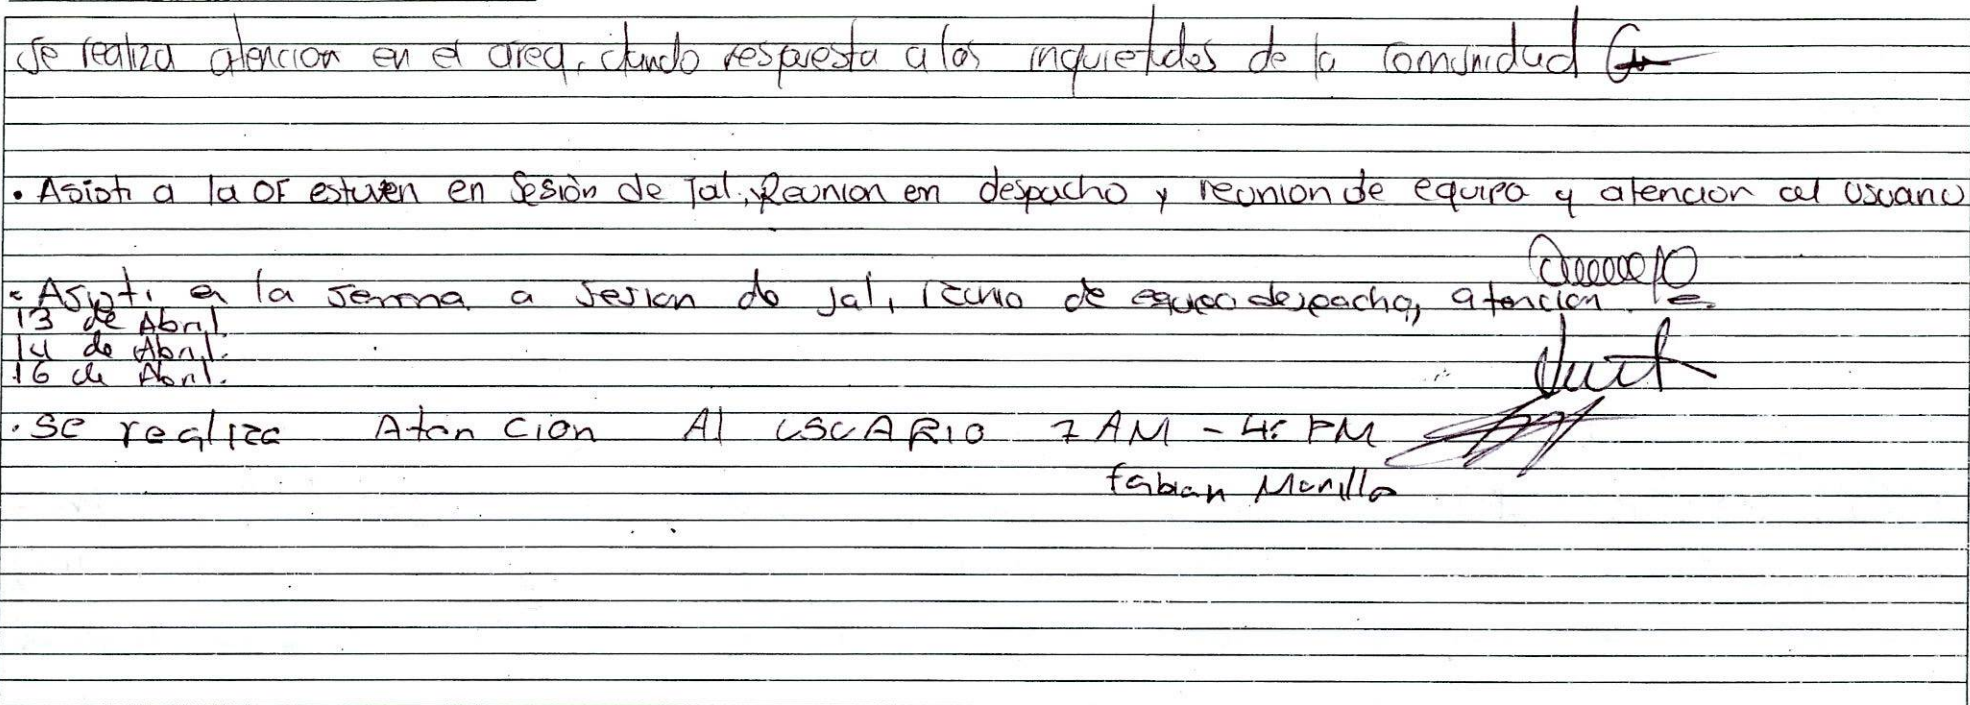 Se realiza atencion en el area, dando respuesta a las inquietudes de la comunidad
• Asisti a la OF estuven en Sesión de Jal, y Reunion en despacho y reunion de equipo y atencion al usuario
• Asisti a la semna a sesion de Jal, de equipo despacho, atencion
13 de Abril.
14 de Abril.
16 de Abril.
• Se realiza Atencion Al USUARIO 7 AM - 4: PM
fabian